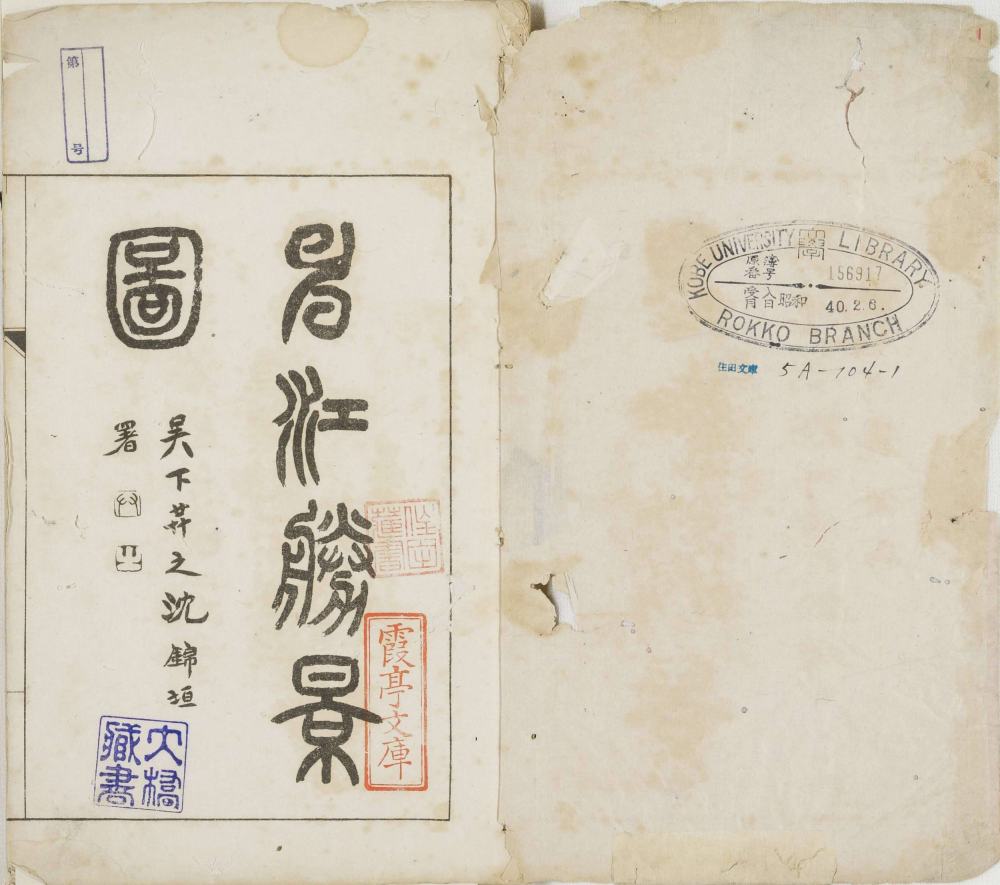 KOBE UNIVERSITY LIBRARY
原簿番号 156917
受入月日 昭和 40.2.6.
ROKKO BRANCH
住田文庫 5A-104-1
申江勝景
圖
吴下之沈錦垣
署
霞亭文庫
大橋
藏書
第 号